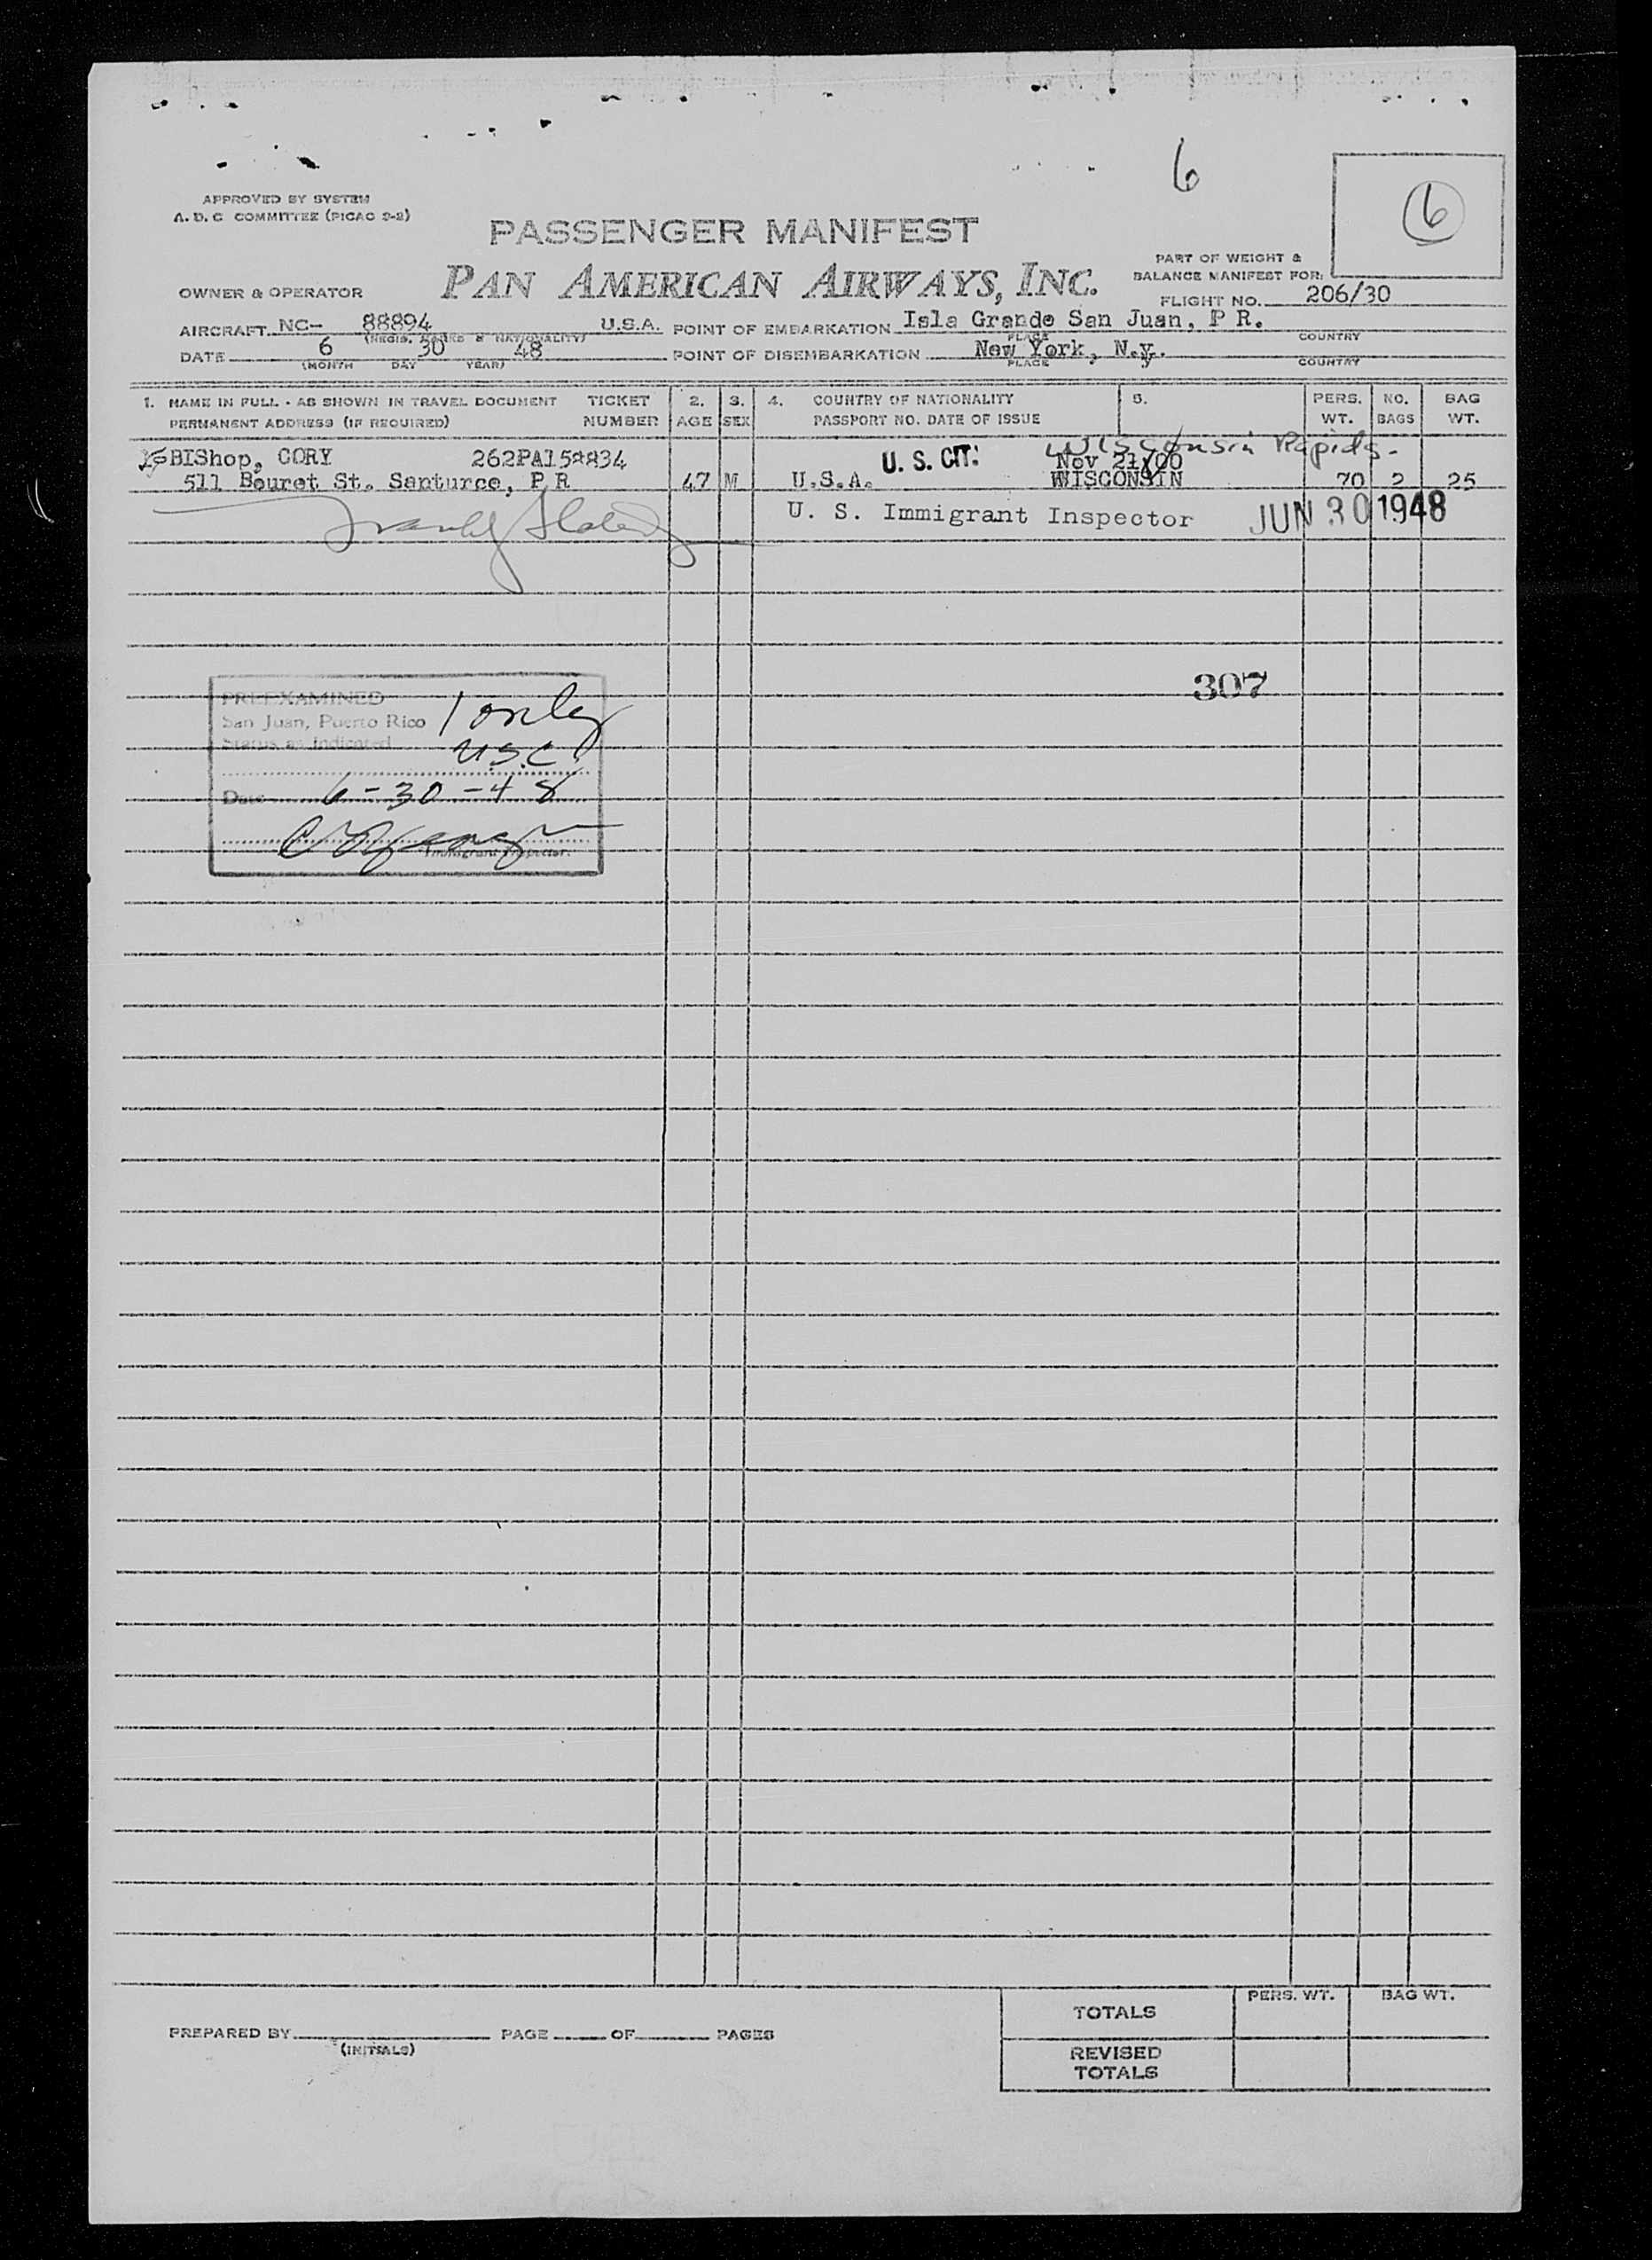 6
APPROVED BY SYSTEM
A. D. C COMMITTEE (PICAO 9-2)
6
PASSENGER MANIFEST
PART OF WEIGHT &
BALANCE MANIFEST FOR:
OWNER & OPERATOR
PAN AMERICAN AIRWAYS, INC.
FLIGHT NO. 206/30
AIRCRAFT NC- 88894 U.S.A. POINT OF EMBARKATION Isla Grande San Juan, P R.
(REGIS. MARKS & NATIONALITY) PLACE COUNTRY
DATE 6 30 48 POINT OF DISEMBARKATION New York, N.y.
(MONTH DAY YEAR) PLACE COUNTRY
1. NAME IN FULL - AS SHOWN IN TRAVEL DOCUMENT TICKET 2. 3. 4. COUNTRY OF NATIONALITY 5. PERS. NO. BAG
PERMANENT ADDRESS (IF REQUIRED) NUMBER AGE SEX PASSPORT NO. DATE OF ISSUE WT. BAGS WT.
Wisconsin Rapids.
BIShop, CORY U. S. CIT. Nov
511 Bouret St. Santurce, P R 47 M U.S.A. WISCONSIN 70 2 25
U. S. Immigrant Inspector JUN 30 1948
307
PREEXAMINED
San Juan, Puerto Rico 1 only
Status as Indicated U.S.C.
Date 6-30-48
Immigrant Inspector.
TOTALS PERS. WT. BAG WT.
PREPARED BY PAGE OF PAGES
(INITIALS)
REVISED
TOTALS